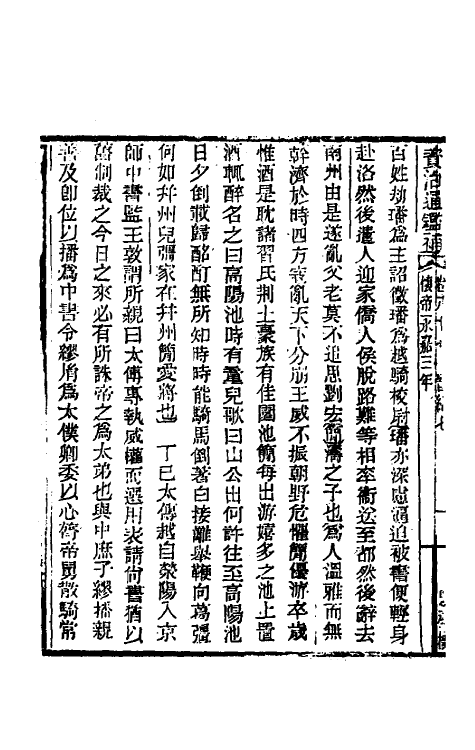 資治通鑑補 懷帝永嘉三年
百姓劫璠爲主詔徵璠爲越騎校尉璠亦深慮逼迫被書便輕身
赴洛然後遣人迎家僑人侯脫路難等相率衛送至都然後辭去
南州由是遂亂父老莫不追思劉宏簡濤之子也爲人溫雅而無
幹濟於時四方寇亂天下分崩王威不振朝野危懼簡優游卒歲
惟酒是耽諸習氏荆土豪族有佳園池簡每出游嬉多之池上置
酒輒醉名之曰高陽池時有童兒歌曰山公出何許往至高陽池
日夕倒載歸酩酊無所知時時能騎馬倒著白接䍦舉鞭向葛彊
何如幷州兒彊家在幷州簡愛將也 丁巳太傅越自滎陽入京
師中書監王敦謂所親曰太傅專執威權而選用表請尚書猶以
舊制裁之今日之來必有所誅帝之爲太弟也與中庶子繆播親
善及卽位以播爲中書令繆胤爲太僕卿委以心膂帝舅散騎常